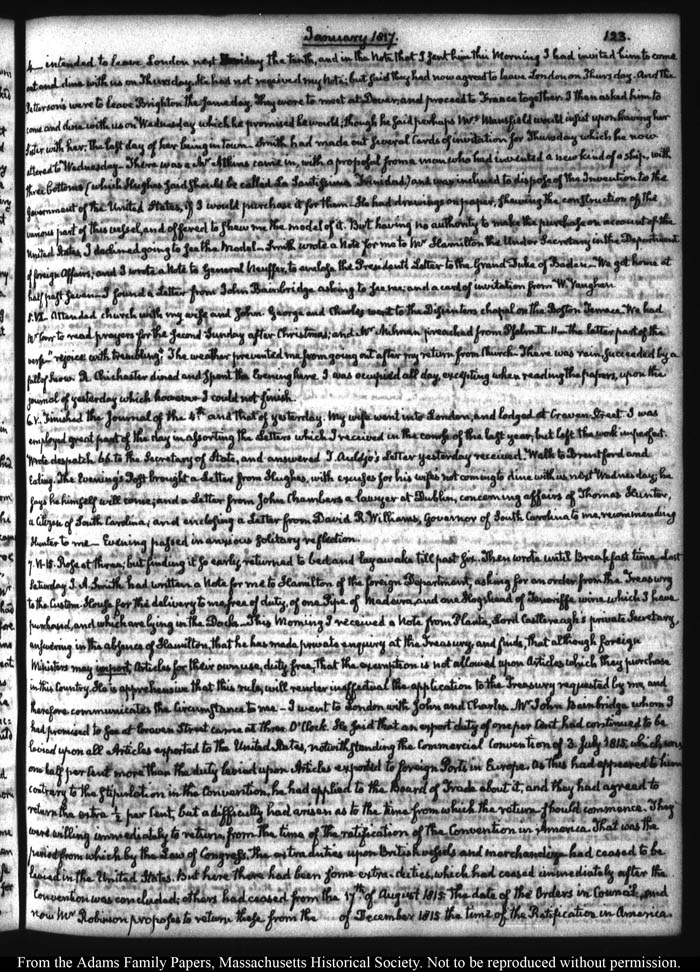 January 1817.
123.
4 intended to leave London next Friday the tenth, and in the Note that I sent him this Morning I had invited him to come
out and dine with us on Thursday. He had not received my Note; but said they had now agreed to leave London on Thursday. And the
Pattersons were to leave Brighton the same day. They were to meet at Dover, and proceed to France together. I then asked him to
come and dine with us on Wednesday which he promised he would; though he said perhaps Mrs Mansfield would insist upon having her
Sister with her, the last day of her being in town. Smith had made out several Cards of invitation for Thursday which he now
altered to Wednesday. There was a Mr Atkins came in, with a proposal from a man who had invented a new kind of a ship, with
three bottoms (which Hughes said should be called La Santissima Trinidad) and was inclined to dispose of the Invention to the
Government of the United States, if I would purchase it for them. He had drawings on paper, shewing the construction of the
various part of this vessel, and offered to shew me the model of it. But having no authority to make the purchase on account of the
United States, I declined going to see the Model. Smith wrote a Note for me to Mr Hamilton the Under Secretary in the Department
of foreign Affairs; and I wrote a Note to General Neuffer, to enclose the President's Letter to the Grand Duke of Baden. We got home at
half past seven. I found a Letter from John Bainbridge asking to see me; and a card of invitation from W. Vaughan.
5. VI. Attended church with my wife and John. George and Charles went to the Dissenters chapel on the Boston Terrace. We had
Mr Carr to read prayers for the Second Sunday after Christmas; and Mr preached from Psalm II. 11 the latter part of the
verse "rejoice with trembling." The weather prevented me from going out after my return from Church. There was rain, succeeded by a
fall of snow. R. Chichester dined and spent the Evening here. I was occupied all day, excepting when reading the papers, upon the
journal of yesterday which however I could not finish.
6. V. Finished the Journal of the 4th and that of yesterday. My wife went into London, and lodged at Craven Street. I was
employed great part of the day in assorting the Letters which I received in the course of the last year, but left the work imperfect.
Wrote despatch 66 to the Secretary of State, and answered T. Auldjo's Letter yesterday received. Walk to Brentford and
Ealing. The Evening's Post brought a Letter from Hughes, with excuses for his wife's not coming to dine with us next Wednesday; he
says he himself will come; and a Letter from John Chambers a lawyer at Dublin, concerning affairs of Thomas Hunter,
a Citizen of South Carolina; and enclosing a Letter from David R. Williams, Governor of South Carolina to me, recommending
Hunter to me. Evening passed in anxious solitary reflection.
7. Rose at three; but finding it so early, returned to bed and lay awake till past six. Then wrote until Breakfast time. Last
Saturday J. A. Smith had written a Note for me to Hamilton of the foreign Department, asking for an order from the Treasury
to the Custom House for the delivery to me free of duty, of one Pipe of Madeira, and one Hogshead of Teneriffe wine which I have
purchased, and which are lying in the Docks. This Morning I received a Note from Planta, Lord Castlereagh's private Secretary,
answering in the absence of Hamilton, that he has made private enquiry at the Treasury, and finds, that although foreign
Ministers may import Articles for their own use, duty free, that the exemption is not allowed upon Articles which they purchase
in this Country. He is apprehensive that this rule, will render ineffectual the application to the Treasury requested by me, and
therefore communicates the Circumstance to me. I went to London with John and Charles. Mr John Bainbridge whom I
had promised to see at Craven Street came at three O'Clock. He said that an export duty of one per Cent had continued to be
levied upon all Articles exported to the United States, notwithstanding the Commercial Convention of 3. July 1815, which was
one half per Cent more than the duty levied upon Articles exported to foreign Ports in Europe. As this had appeared to him
contrary to the Stipulation in the Convention, he had applied to the Board of Trade about it, and they had agreed to
return the extra ½ per Cent, but a difficulty had arisen as to the time from which the return should commence. They
were willing immediately to return, from the time of the ratification of the Convention in America. That was the
period from which by the Law of Congress, the extra duties upon British vessels and merchandize had ceased to be
levied in the United States. But here there had been some extra-duties, which had ceased immediately after the
Convention was concluded; others had ceased from the 17th of August 1815 the date of the Orders in Council, and
now Mr Robinson proposes to return these from the of December 1815 the time of the Ratification in America.
From the Adams Family Papers, Massachusetts Historical Society. Not to be reproduced without permission.